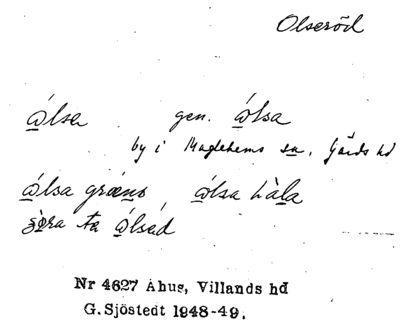 Olseröd
ώ̨lsa gen. ώ̨lsa
by i Maglehems sn, Gärds hd
ώ̨lsa græns, ώ̨lsa bàla
ta ώ̨lsad
Nr 4627 Åhus, Villands hd
G. Sjöstedt 1948-49.